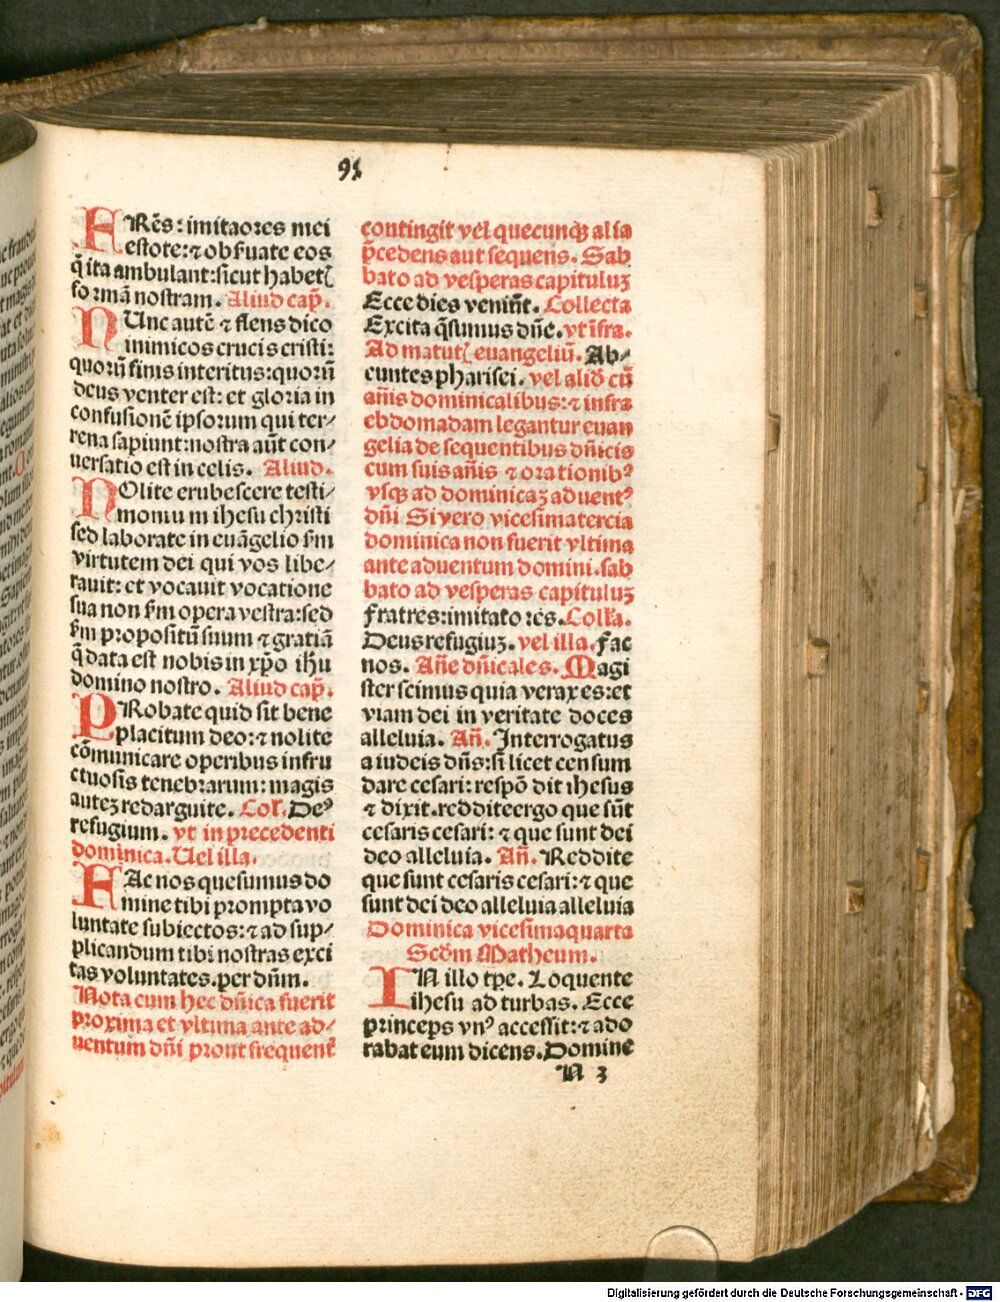 91
FRēs: imitaores mei
estote: ⁊ obſuate eos
q̄ ita ambulant: ſicut habetꝭ
formā noſtram. Aliud cap̄.
NUnc autē ⁊ flens dico
inimicos crucis criſti:
quorū finis interitus: quorū
deus venter eſt: et gloria in
confuſionē ipſorum qui ter⸗
rena ſapiunt: noſtra aūt con⸗
uerſatio eſt in celis. Aliud.
NOlite erubeſcere teſti⸗
monium iheſu chriſti
ſed laborate in euāgelio ẜm
virtutem dei qui vos libe⸗
rauit: et vocauit vocatione
ſua non ẜm opera veſtra: ſed
ẜm propoſitū ſuum ⁊ gratiā
q̄ data eſt nobis in xp̄o ih̄u
domino noſtro. Aliud cap̄.
PRobate quid ſit bene
placitum deo: ⁊ nolite
cōmunicare operibus infru
ctuoſis tenebrarum: magis
auteꝫ redarguite. Col̄. Deꝰ
refugium. vt in precedenti
dominica. Uel illa.
FAc nos queſumus do
mine tibi prompta vo
luntate ſubiectos: ⁊ ad ſup⸗
plicandum tibi noſtras exci
tas voluntates. per dn̄m.
Nota cum hec dn̄ica fuerit
proxima et vltima ante ad⸗
uentum dn̄i prout frequent̄
contingit vel quecunqꝫ al ſa
p̄cedens aut ſequens. Sab
bato ad veſperas capituluꝫ
Ecce dies venint̄. Collecta
Excita q̄ſumus dn̄e. vt īfra.
Ad matutꝭ euangeliū. Ab⸗
euntes phariſei. vel aliđ cū
an̄is dominicalibus: ⁊ infra
ebdomadam legantur euan
gelia de ſequentibus dn̄icis
cum ſuis an̄is ⁊ orationibꝰ
vſqꝫ ad dominicaꝫ aduentꝰ
dn̄i Si vero viceſimatercia
dominica non fuerit vltima
ante aduentum domini. ſab
bato ad veſperas capituluꝫ
Fratres: imitatores. Coll̄a.
Deus refugiuꝫ. vel illa. Fac
nos. An̄e dn̄icales. Magi
ſter ſcimus quia verax es: et
viam dei in veritate doces
alleluia. An̄. Interrogatus
a iudeis dn̄s: ſi licet cenſum
dare ceſari: reſpōdit iheſus
⁊ dixit. reddite ergo que ſūt
ceſaris ceſari: ⁊ que ſunt dei
deo alleluia. An̄. Reddite
que ſunt ceſaris ceſari: ⁊ que
ſunt dei deo alleluia alleluia
Dominica viceſimaquarta
Scđm Matheum.
IN illo tp̄e. Loquente
iheſu ad turbas. Ecce
princeps vnꝰ acceſſit: ⁊ ado
rabat eum dicens. Domine
N 3
Digitalisierung gefördert durch die Deutsche Forschungsgemeinschaft - DFG